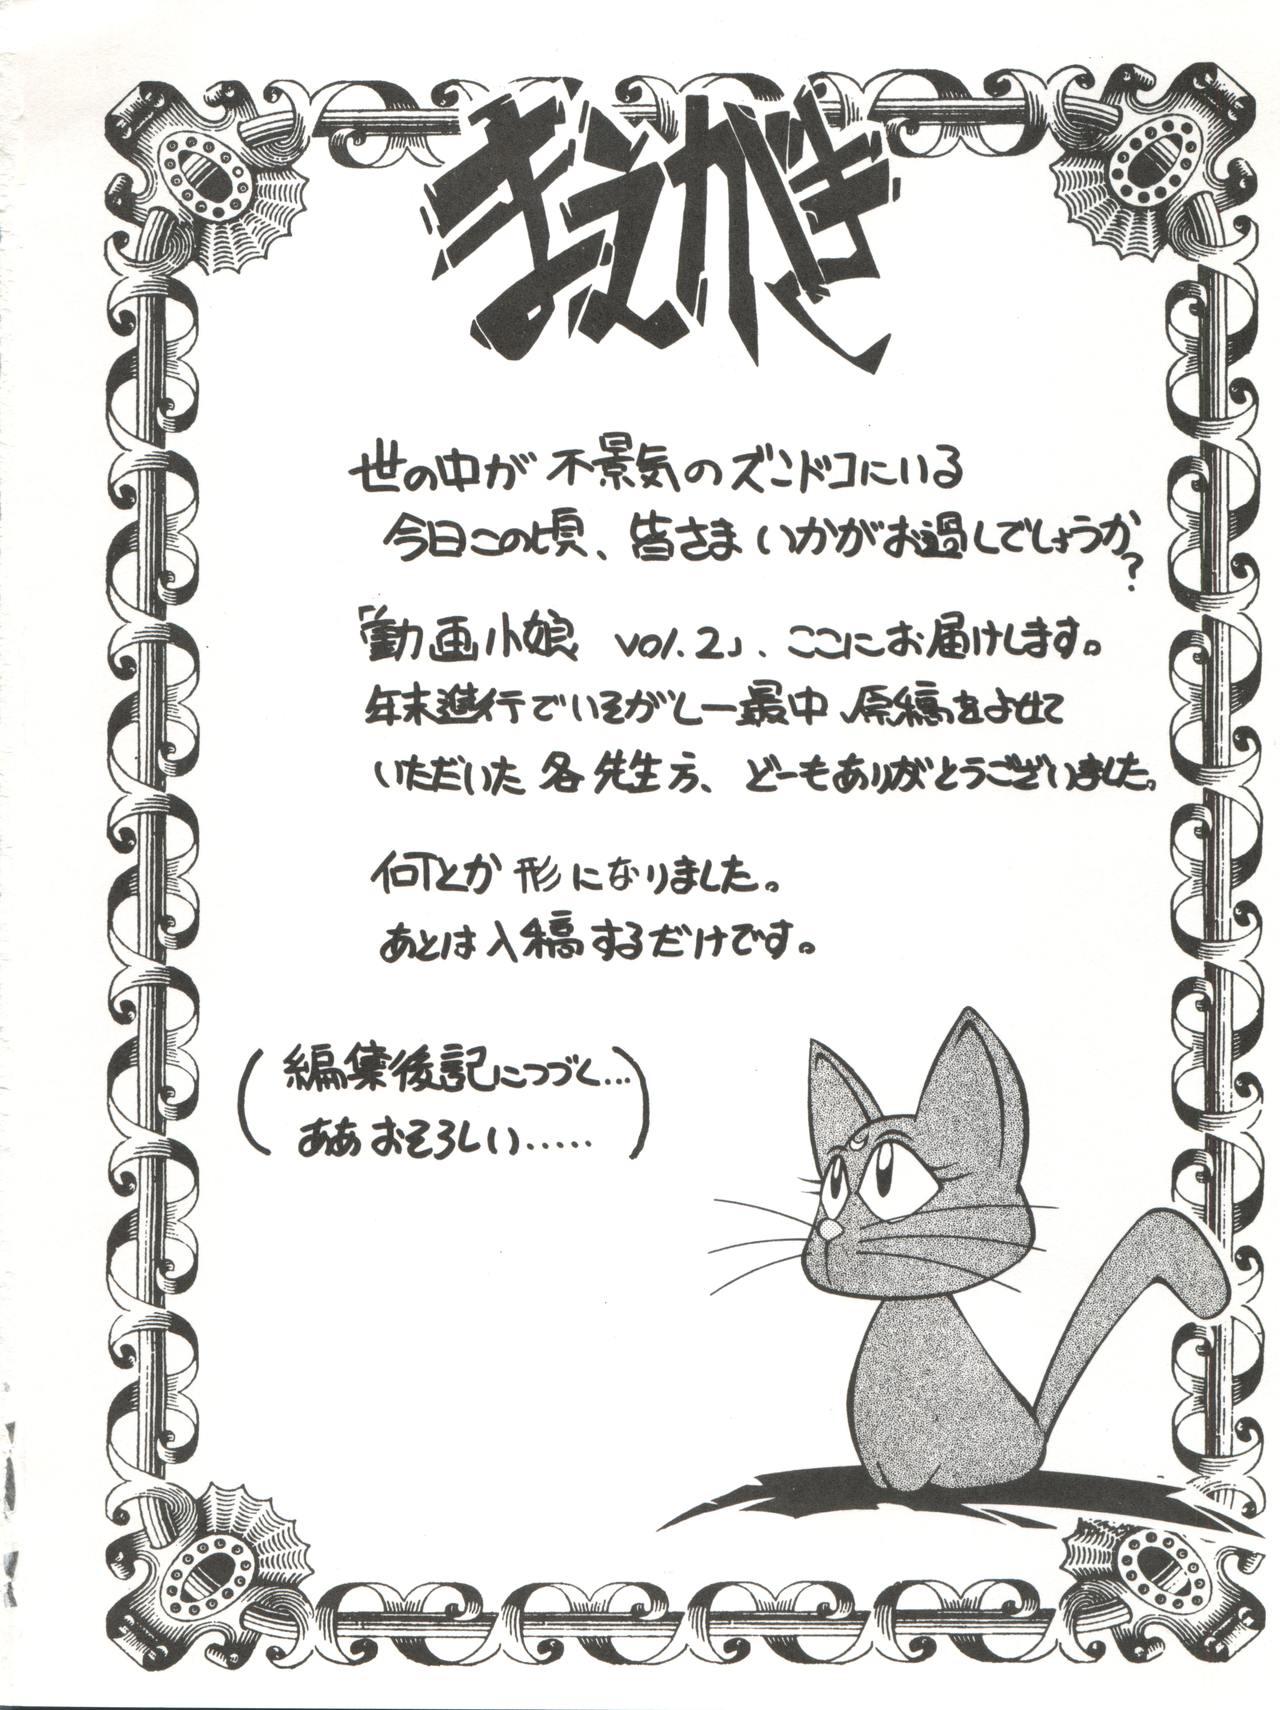 まえがき
世の中が不景気のズンドコにいる
今日この頃、皆さまいかがお過しでしょうか?
「動画小娘 vol.2」、ここにお届けします。
年末進行でいそがしー最中原稿をよせて
いただいた各先生方、どーもありがとうございました。
何とか形になりました。
あとは入稿するだけです。
(編集後記につづく…
ああおそろしい‥‥‥)